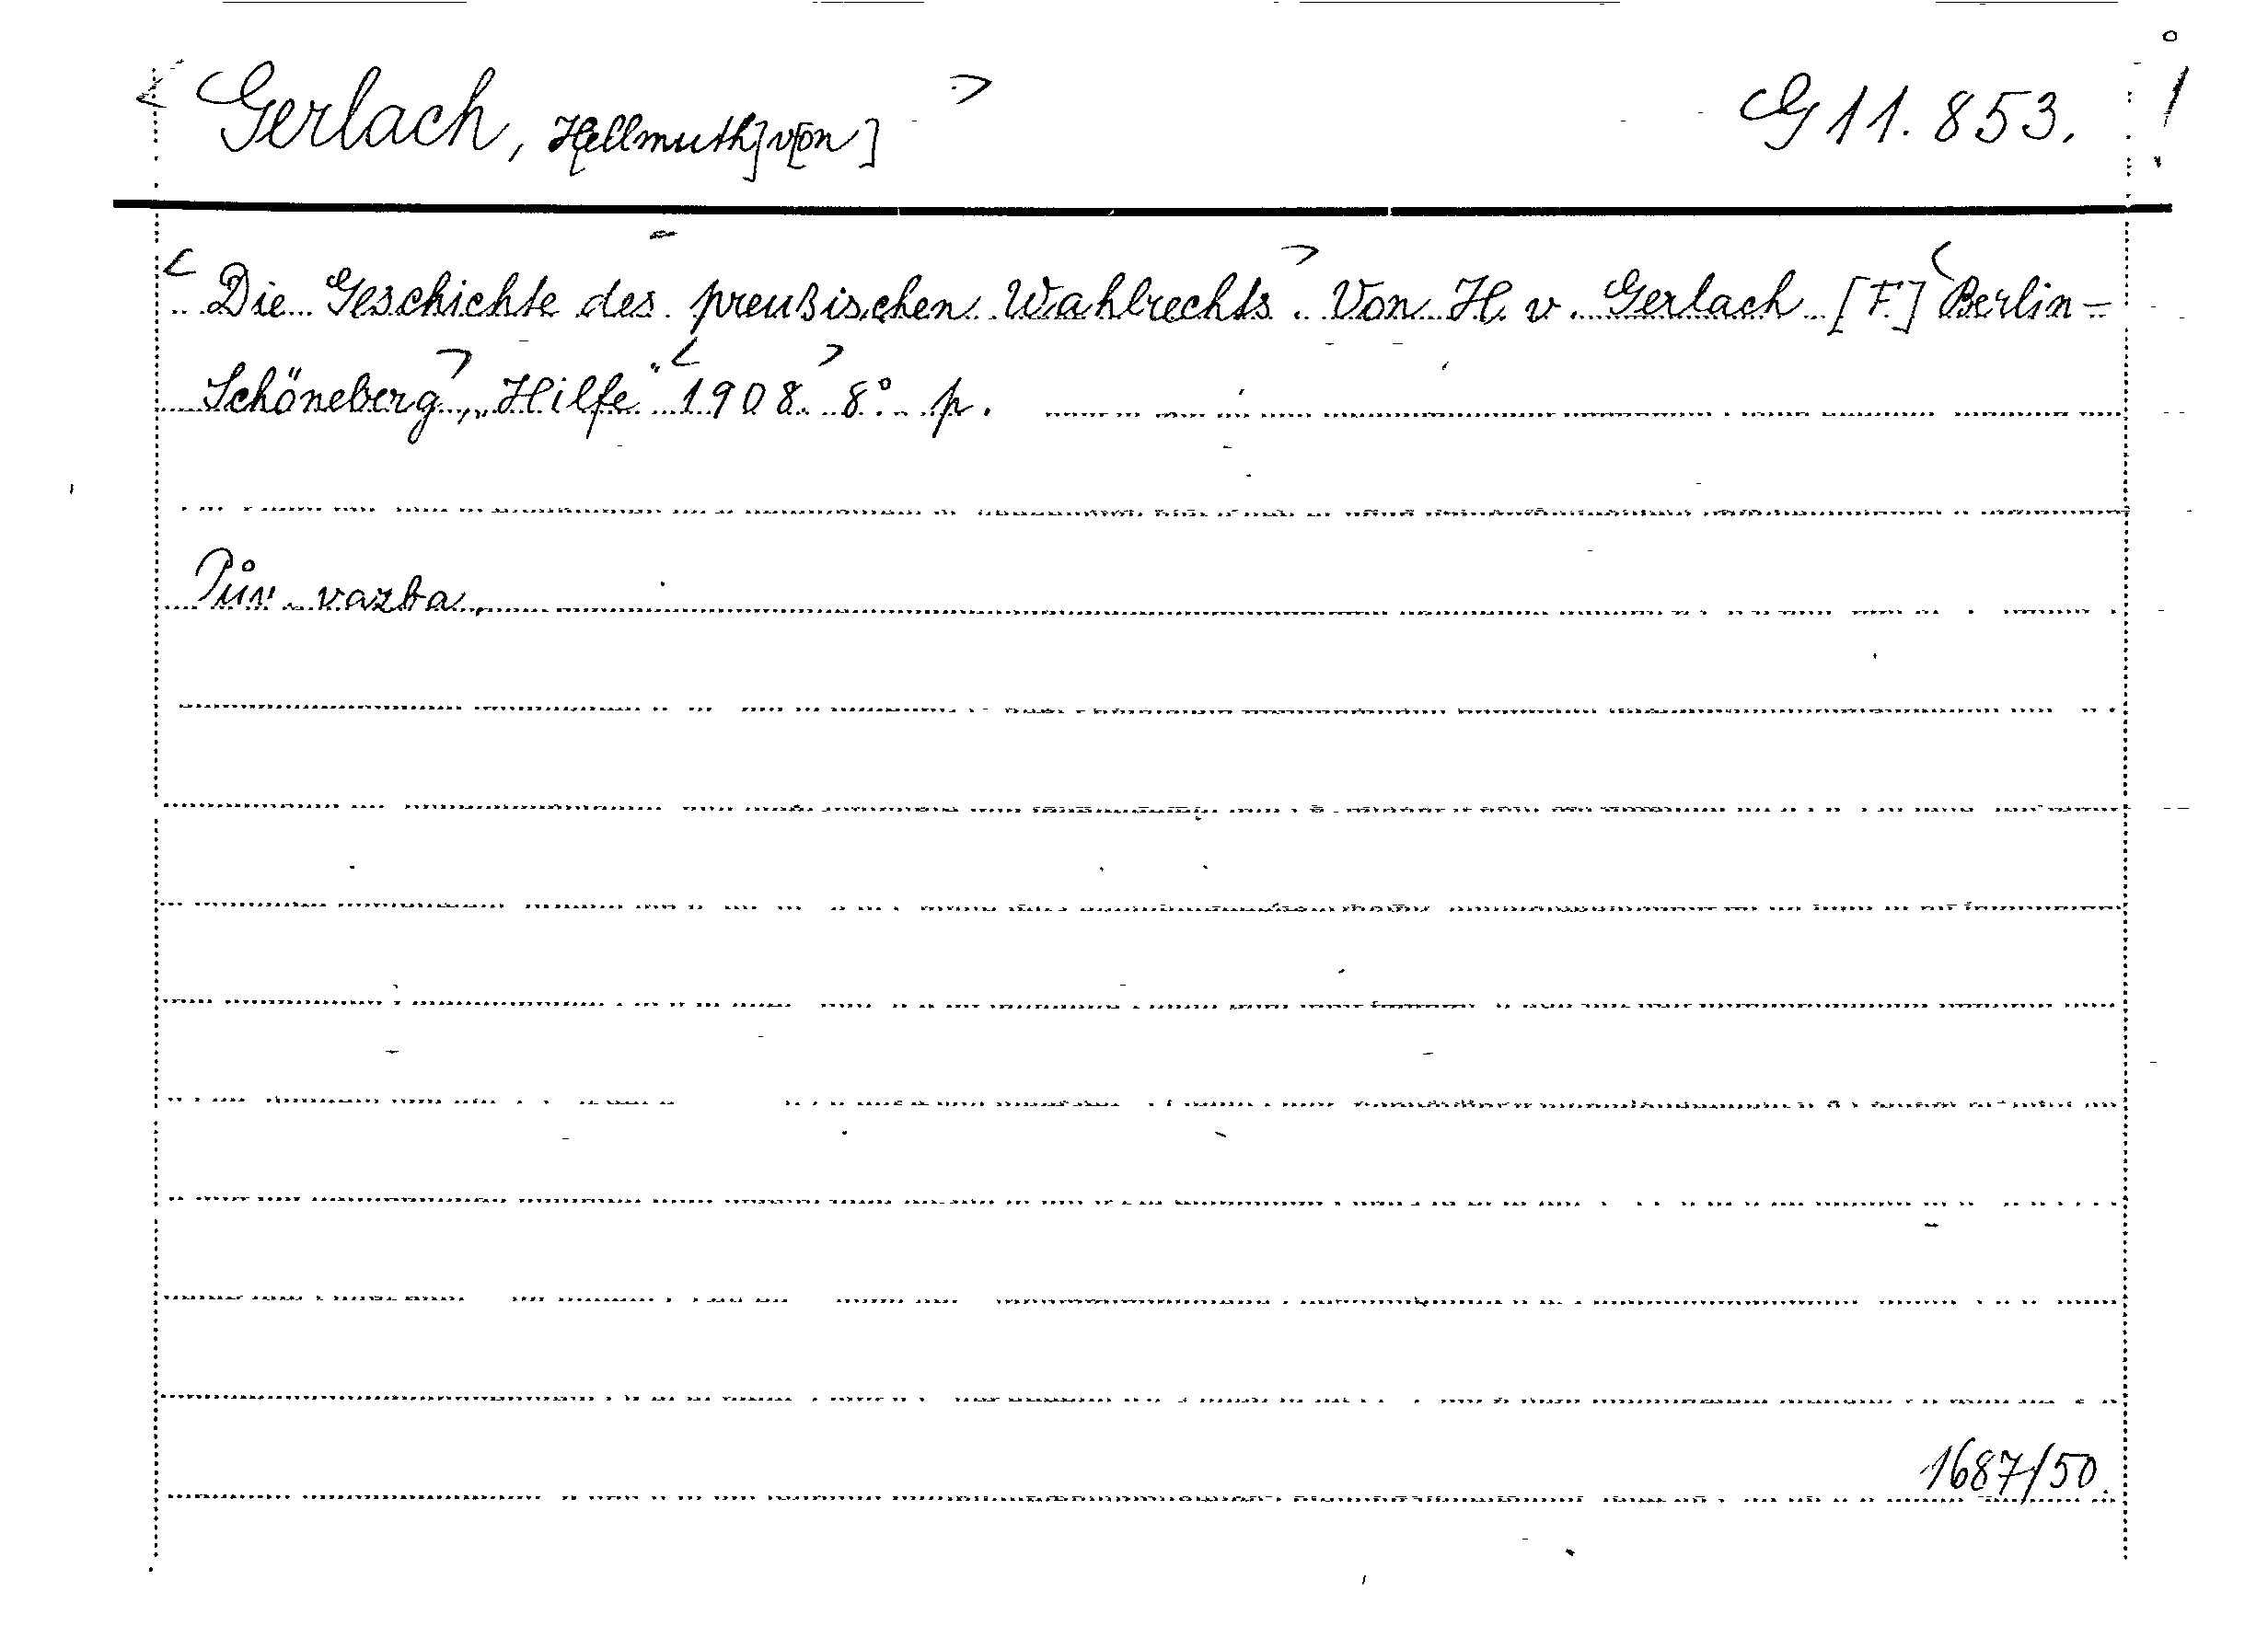 < Gerlach, H[ellmuth] v[on] > G 11.853. !
< Die Geschichte des preußischen Wahlrechts. > Von H. v. Gerlach [F.] < Berlin=
Schöneberg >, „Hilfe“ < 1908 > 8° p.
Pův. vazba.
1687/50.